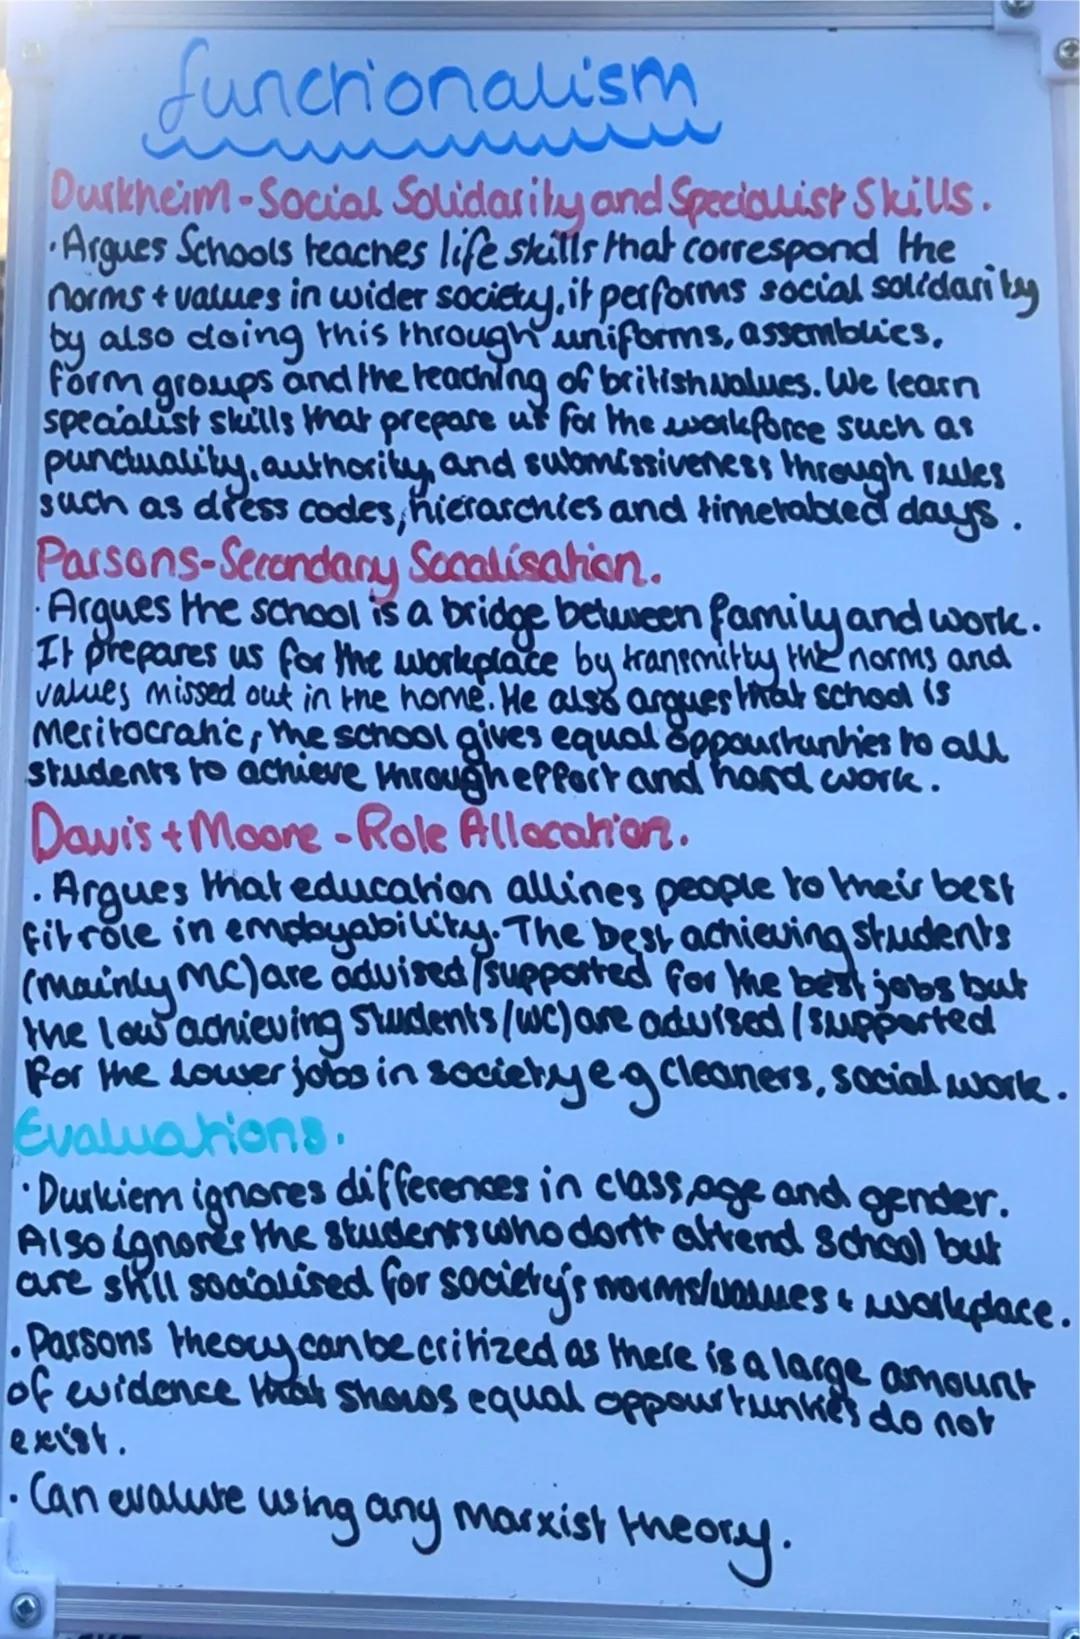 functionalism
Durkheim - Social Solidarity and Specialist Skills.
· Argues Schools teaches life skills that correspond the
norms + values in wider society, it performs social solidarity
by also doing this through uniforms, assemblies,
form groups and the teaching of british values. We learn
specialist skills that prepare us for the workforce such as
punctuality, authority, and submissiveness through rules
such as dress codes, hierarchies and timetabled days.
Parsons - Secondary Socalisation.
· Argues the school is a bridge between family and work.
It prepares us for the workplace by transmitty the norms and
values missed out in the home. He also argues that school is
Meritocratic, the school gives equal oppourtunties to all
students to achieve through effort and hard work.
Davis + Moore - Role Allocation.
· Argues that education allines people to their best
fit role in employability. The best achieving students
(mainly MC) are advised/supported for the best jobs but
the low achieving students/(WC) are advised/supported
for the lower jobs in society e.g cleaners, social work.
Evaluations.
· Durkiem ignores differences in class, age and gender.
Also ignores the students who don't attend school but
are still socialised for society's norms/values + workplace.
· Parsons theory can be critized as there is a large amount
of evidence that shows equal oppourtunties do not
exist.
· Can evalute using any marxist theory.